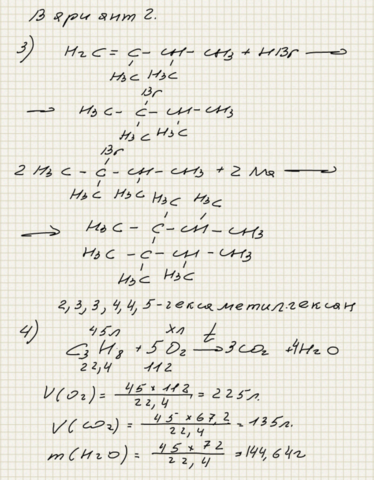 Вариант 2.
3) H2C = C - CH - CH3 + HBr →
H3C H3C
Br
→ H3C - C - CH - CH3
H3C H3C
Br
2 H3C - C - CH - CH3 + 2 Na →
H3C H3C H3C H3C
→ H3C - C - CH - CH3
H3C - C - CH - CH3
H3C H3C
2,3,3,4,4,5-гексаметилгексан
4) 45л хл t
C3H8 + 5O2 → 3CO2 4H2O
22,4 112
V(O2) = 45 × 112 / 22,4 = 225л.
V(CO2) = 45 × 67,2 / 22,4 = 135л.
m(H2O) = 45 × 72 / 22,4 = 144,64г